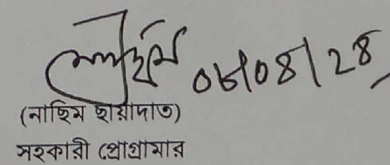 ০৮/০৪/২৪
(নাছিম ছায়াদাত)
সহকারী প্রোগ্রামার